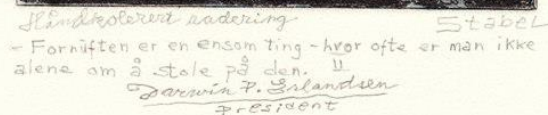 Håndkolorert radering Stabel
- Fornuften er en ensom ting - hvor ofte er man ikke
alene om å stole på den. "
Darwin P. Erlandsen
President